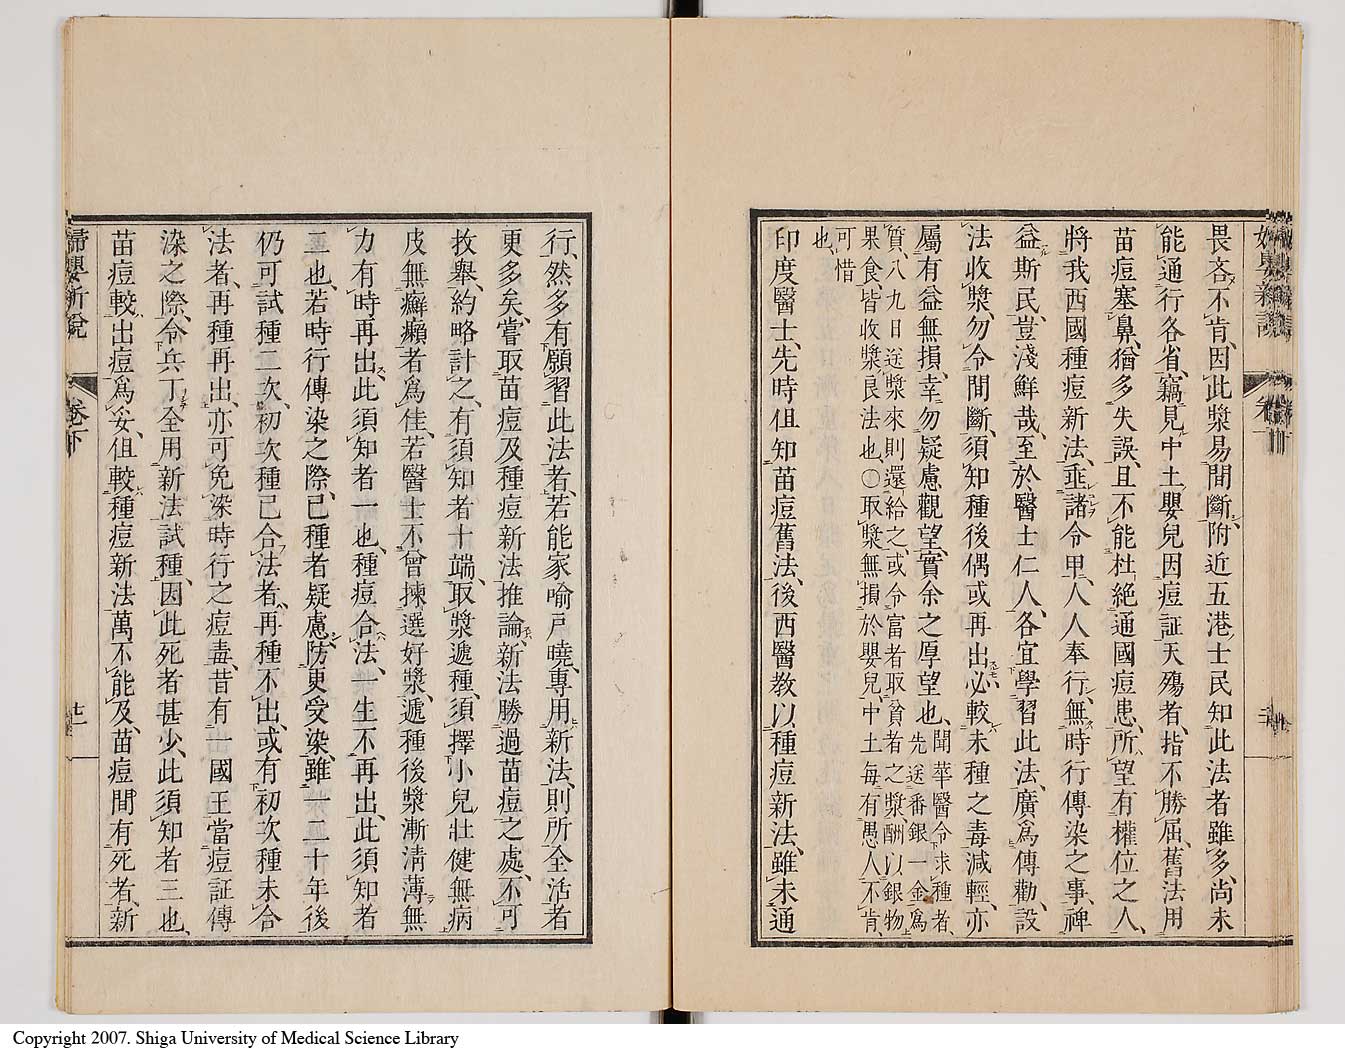 畏吝不肯、因此漿易間斷、附近五港士民知此法者雖多、尚未
能通行各省、竊見中土嬰兒因痘証夭殤者、指不勝屈、舊法用
苗痘塞鼻、猶多失誤、且不能杜絕通國痘患、所望有權位之人、
將我西國種痘新法、垂諸令甲、人人奉行、無時行傳染之事、裨
益斯民、豈淺鮮哉、至於醫士仁人、各宜學習此法、廣爲傳勸、設
法收漿、勿令間斷、須知種後偶或再出、必較未種之毒減輕、亦
屬有益無損、幸勿疑慮觀望、實余之厚望也、聞華醫令求種者、先送番銀一金爲
質、八九日送漿來則還給之、或令富者取貧者之漿、酬以銀物
果食、皆收漿良法也、〇取漿無損於嬰兒、中土每有愚人不肯、
可惜
也、
印度醫士、先時但知苗痘舊法、後西醫教以種痘新法、雖未通
行、然多有願習此法者、若能家喻戶曉、專用新法、則所全活者
更多矣、嘗取苗痘及種痘新法推論、新法勝過苗痘之處、不可
枚舉、約略計之、有須知者十端、取漿遞種、須擇小兒壯健無病
皮無癬癩者爲佳、若醫士不曾揀選好漿、遞種後漿漸淸薄、無
力有時再出、此須知者一也、種痘合法、一生不再出、此須知者
二也、若時行傳染之際、已種者疑慮、防更受染、雖一二十年後
仍可試種二次、初次種已合法者、再種不出、或有初次種未合
法者、再種再出、亦可免染時行之痘毒、昔有一國王當痘証傳
染之際、令兵丁全用新法試種、因此死者甚少、此須知者三也、
苗痘較出痘爲妥、但較種痘新法萬不能及、苗痘間有死者、新
婦嬰新說
卷下
廿一